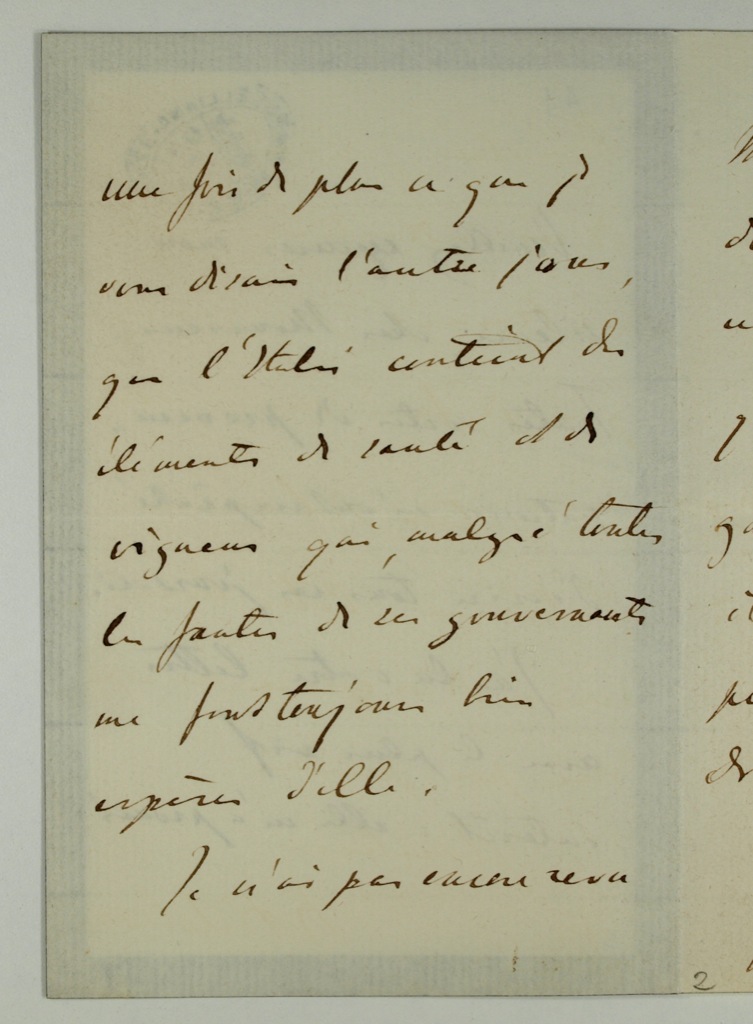 une fois de plus ce que je
vous disais l'autre jour,
que l'Italie contient des
éléments de santé et de
vigueur qui, malgré toutes
les fautes de ses gouvernants
me font toujours bien
espérer d'elle.
Je n'ai pas encore revu
2